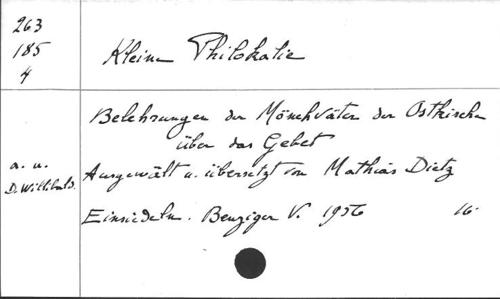 263
185
4
Kleine Philokalie
Belehrungen der Mönchväter der Ostkirche
über das Gebet
a. u.
D. Willibald.
Ausgewält u. übersetzt von Mathias Dietz
Einsiedeln. Benziger V. 1956 16.